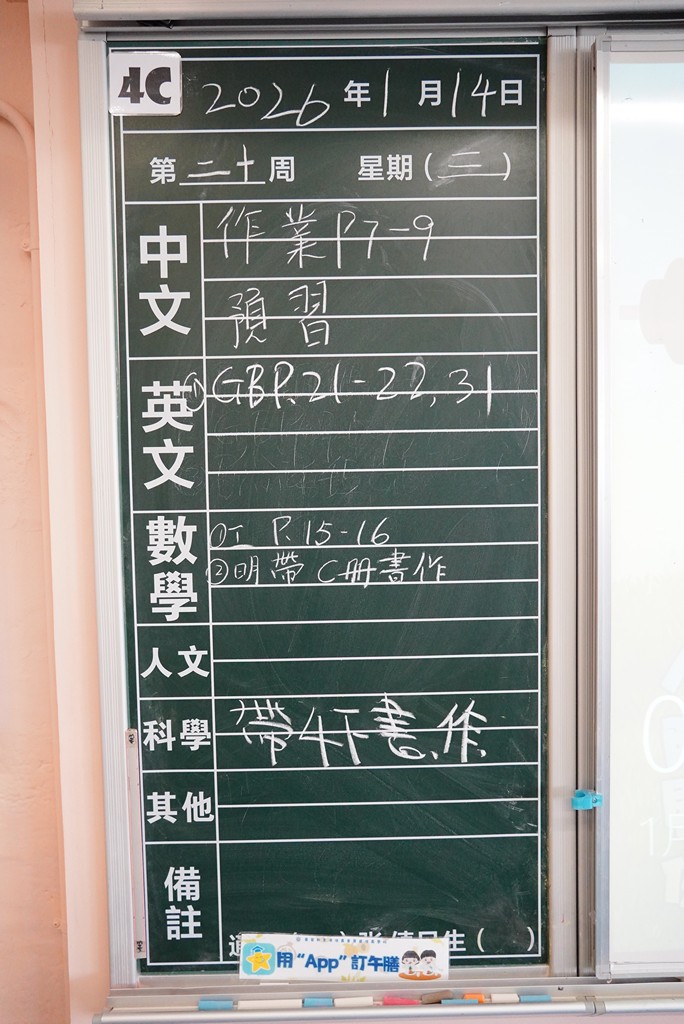 4C 2026年1月14日
第二十周 星期(三)
中文 作業P7-9
預習
英文 ①GBP.21-22,31
數學 ①工 P.15-16
②明帶C冊書作
人文
科學 帶4下書.作.
其他
備註
生( )
用“App”訂午膳